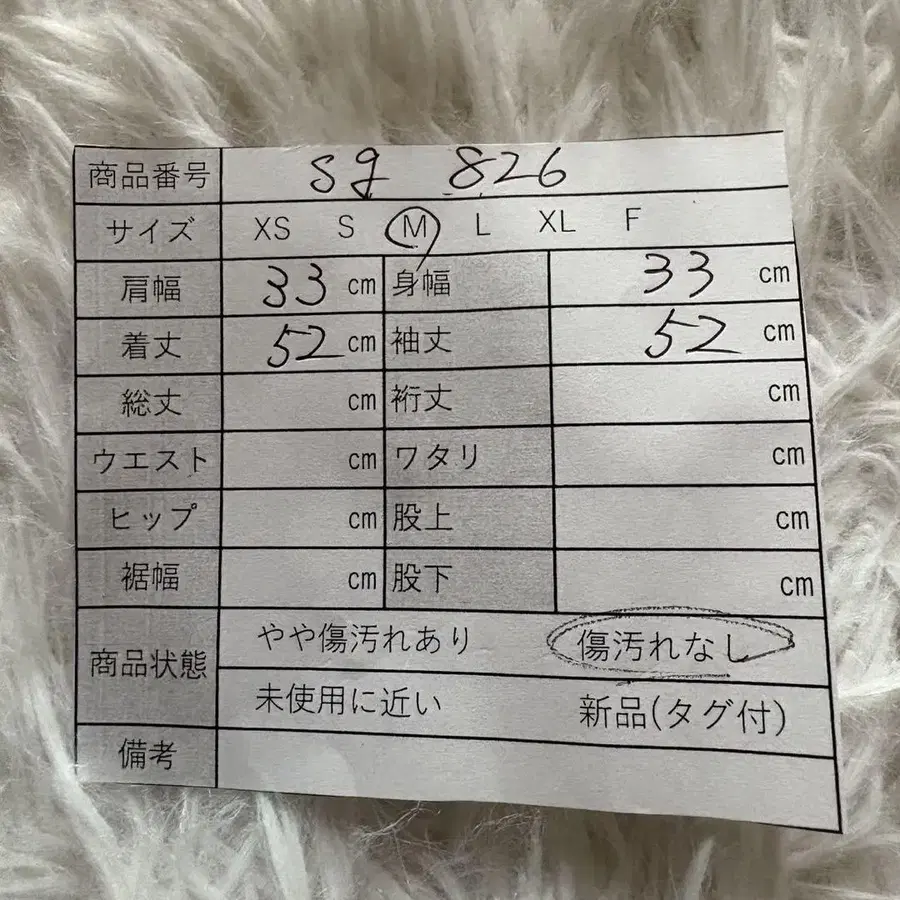 商品番号 sg 826
サイズ XS S M L XL F
肩幅 33 cm 身幅 33 cm
着丈 52 cm 袖丈 52 cm
総丈 cm 裄丈 cm
ウエスト cm ワタリ cm
ヒップ cm 股上 cm
裾幅 cm 股下 cm
商品状態 やや傷汚れあり 傷汚れなし
未使用に近い 新品(タグ付)
備考